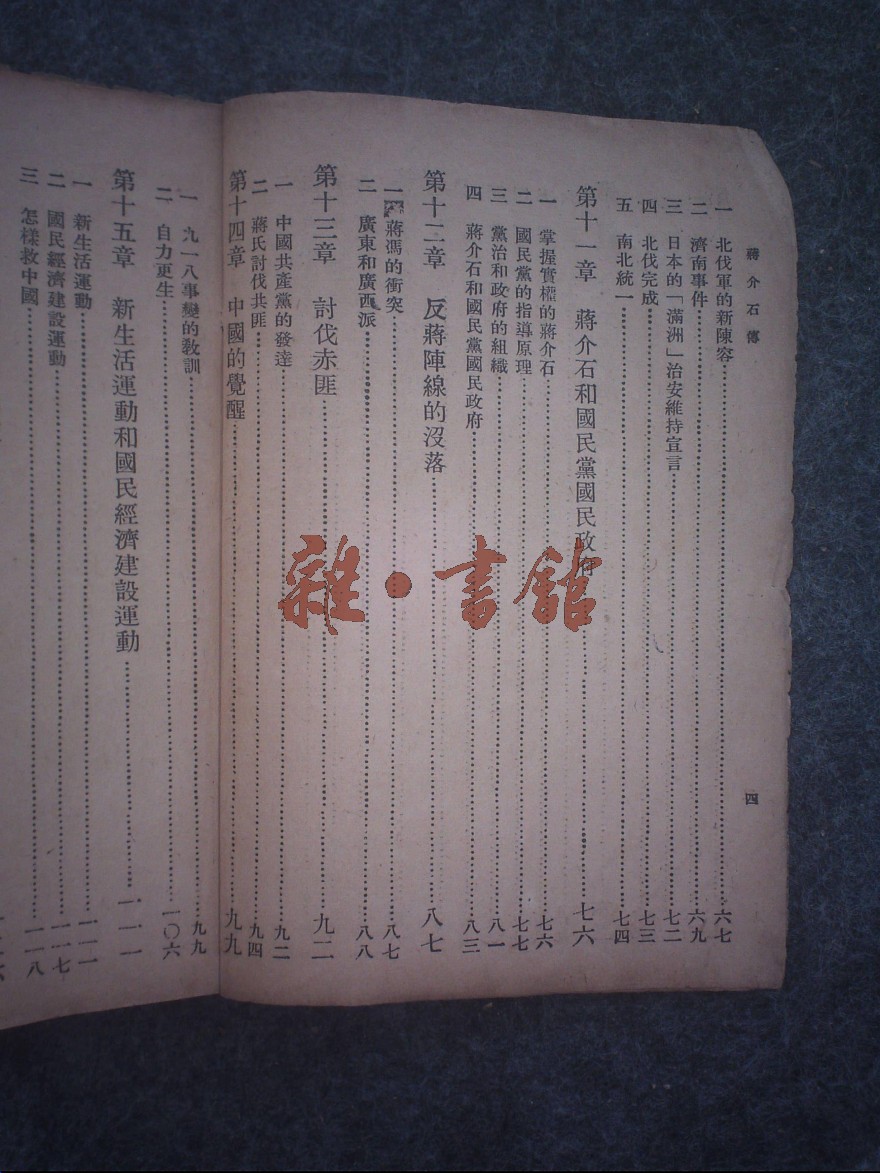 蔣介石傳
四
一 北伐軍的新陳容……六七
二 濟南事件……六九
三 日本的「滿洲」治安維持宣言……七二
四 北伐完成……七三
五 南北統一……七四
第十一章 蔣介石和國民黨國民政府……七六
一 掌握實權的蔣介石……七六
二 國民黨的指導原理……七七
三 黨治和政府的組織……八一
四 蔣介石和國民黨國民政府……八三
第十二章 反蔣陣線的沒落……八七
一 蔣馮的衝突……八七
二 廣東和廣西派……八八
第十三章 討伐赤匪……九二
一 中國共產黨的發達……九二
二 蔣氏討伐共匪……九四
第十四章 中國的覺醒……九九
一 九一八事變的教訓……九九
二 自力更生……一〇六
第十五章 新生活運動和國民經濟建設運動……一一一
一 新生活運動……一一一
二 國民經濟建設運動……一一七
三 怎樣救中國……一一八
雜·書館